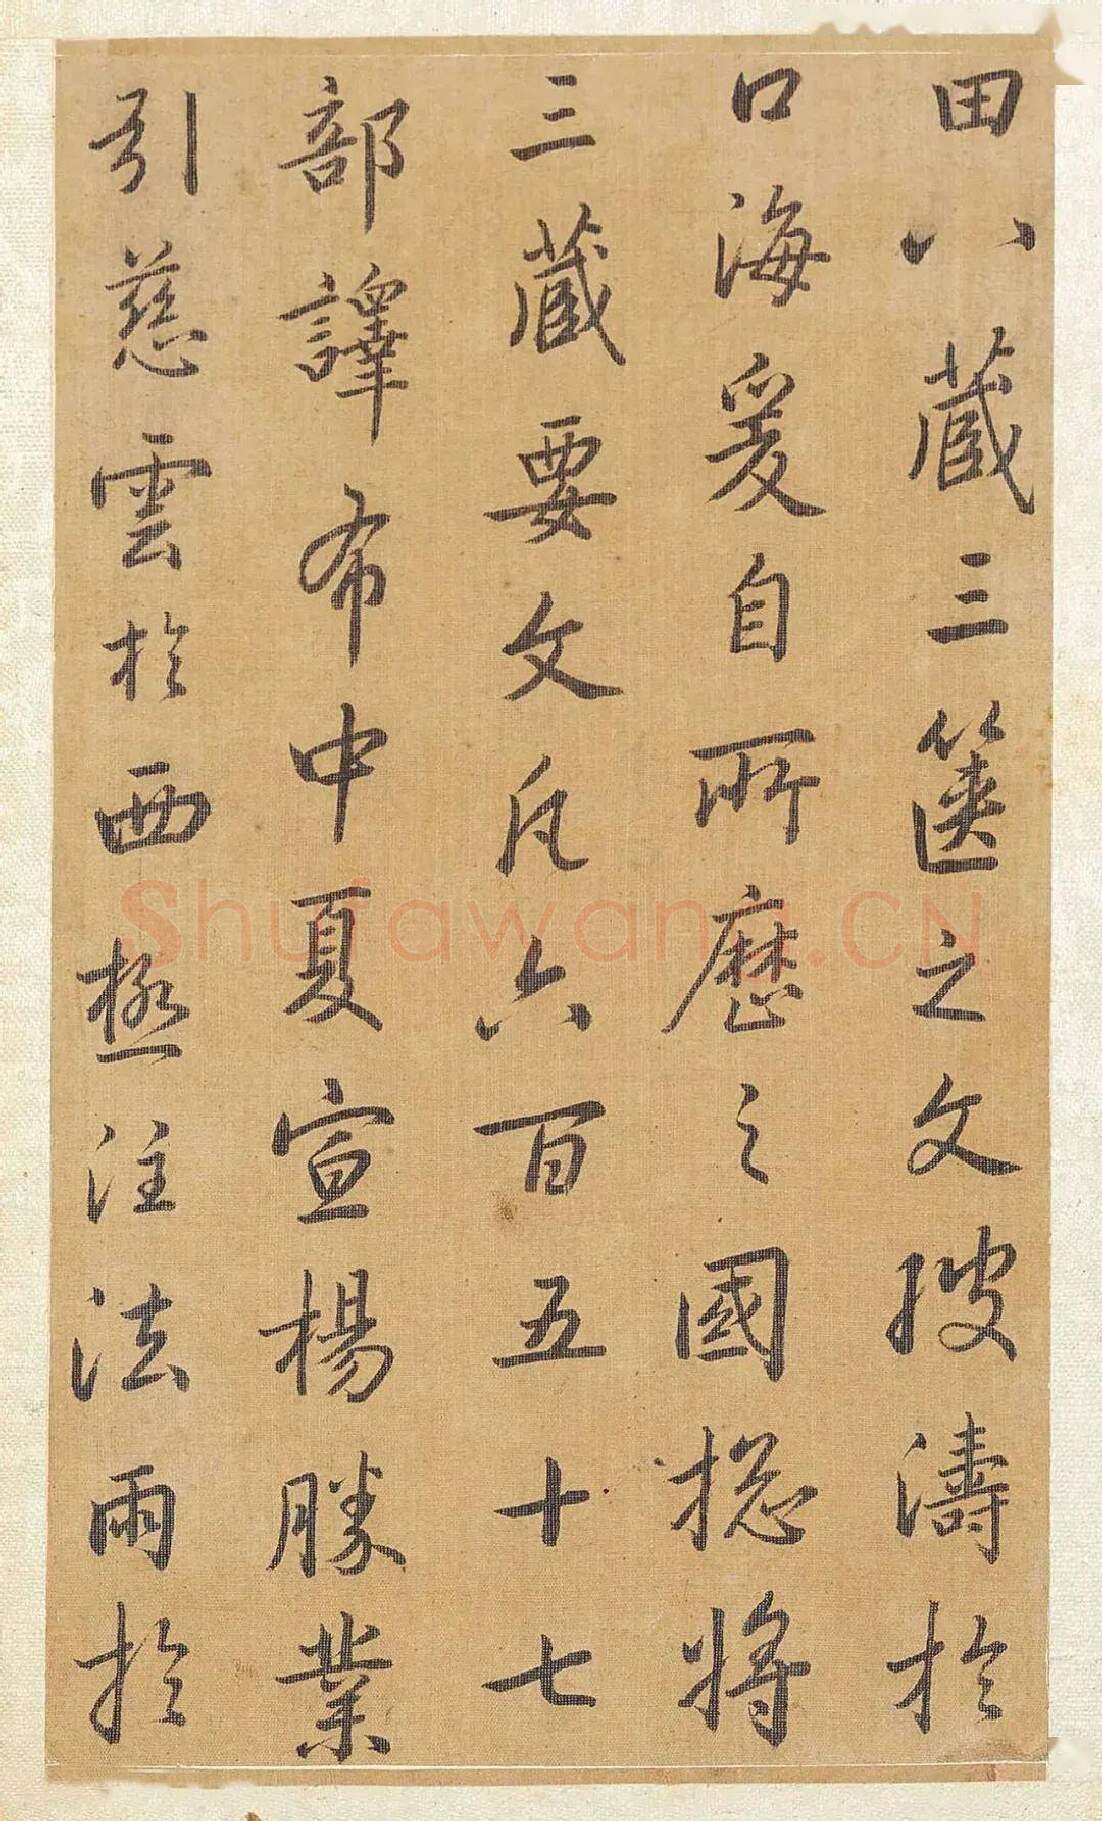 田八藏三篋之文波濤於
口海爰自所歷之國揔將
三藏要文凡六百五十七
部譯布中夏宣楊勝業
引慈雲於西極注法雨於
Shufawang.CN